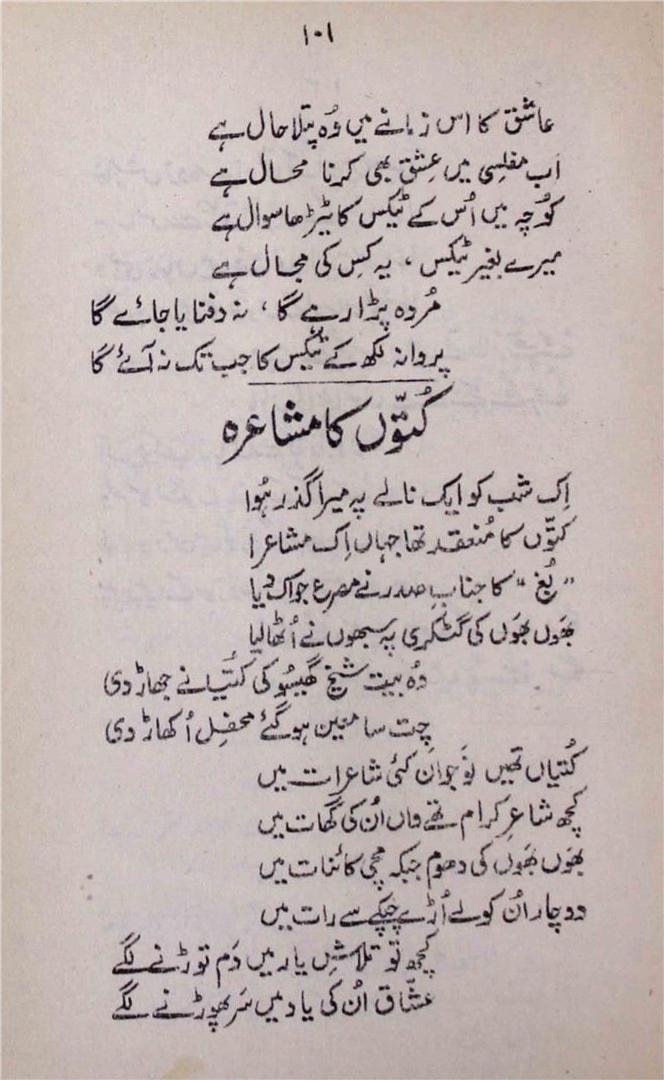 ۱۰۱
عاشق کا اس زمانے میں وُہ پتلا حال ہے
اب مفلسی میں عِشق بھی کرنا محال ہے
کوُچہ میں اُس کے ٹیکس کا ٹیڑھا سوال ہے
میرے بغیر ٹیکس ، یہ کِس کی مجال ہے
مُردہ پڑا رہے گا ، نہ دفنایا جائے گا
پروانہ لکھ کے ٹیکس کا جب تک نہ آئے گا
کُتّوں کا مشاعرہ
اِک شب کو ایک نالے پہ میرا گذر ہُوا
کتّوں کا مُنعقد تھا جہاں اِک مشاعرا
"بُغ" کا جنابِ صدر نے مصرع جو اک دیا
بھَوں بھَوں کی گٹکری پہ سبھوں نے اُٹھا لیا
وہ بیت شیخ گھیسُو کی کُتیا نے جھاڑ دی
چت سامعین ہو گئے محفِل اُکھاڑ دی
کُتیاں تھیں نَو جوان کئی شاعرات میں
کچھ شاعرِ کرام تھے واں اُن کی گھات میں
بھَوں بھَوں کی دھوم جبکہ مچی کائنات میں
دو چار اُن کو لے اُڑے چپکے سے رات میں
کچھ تو تلاشِ یار میں دَم توڑنے لگے
عشّاق اُن کی یاد میں سَر پھوڑنے لگے